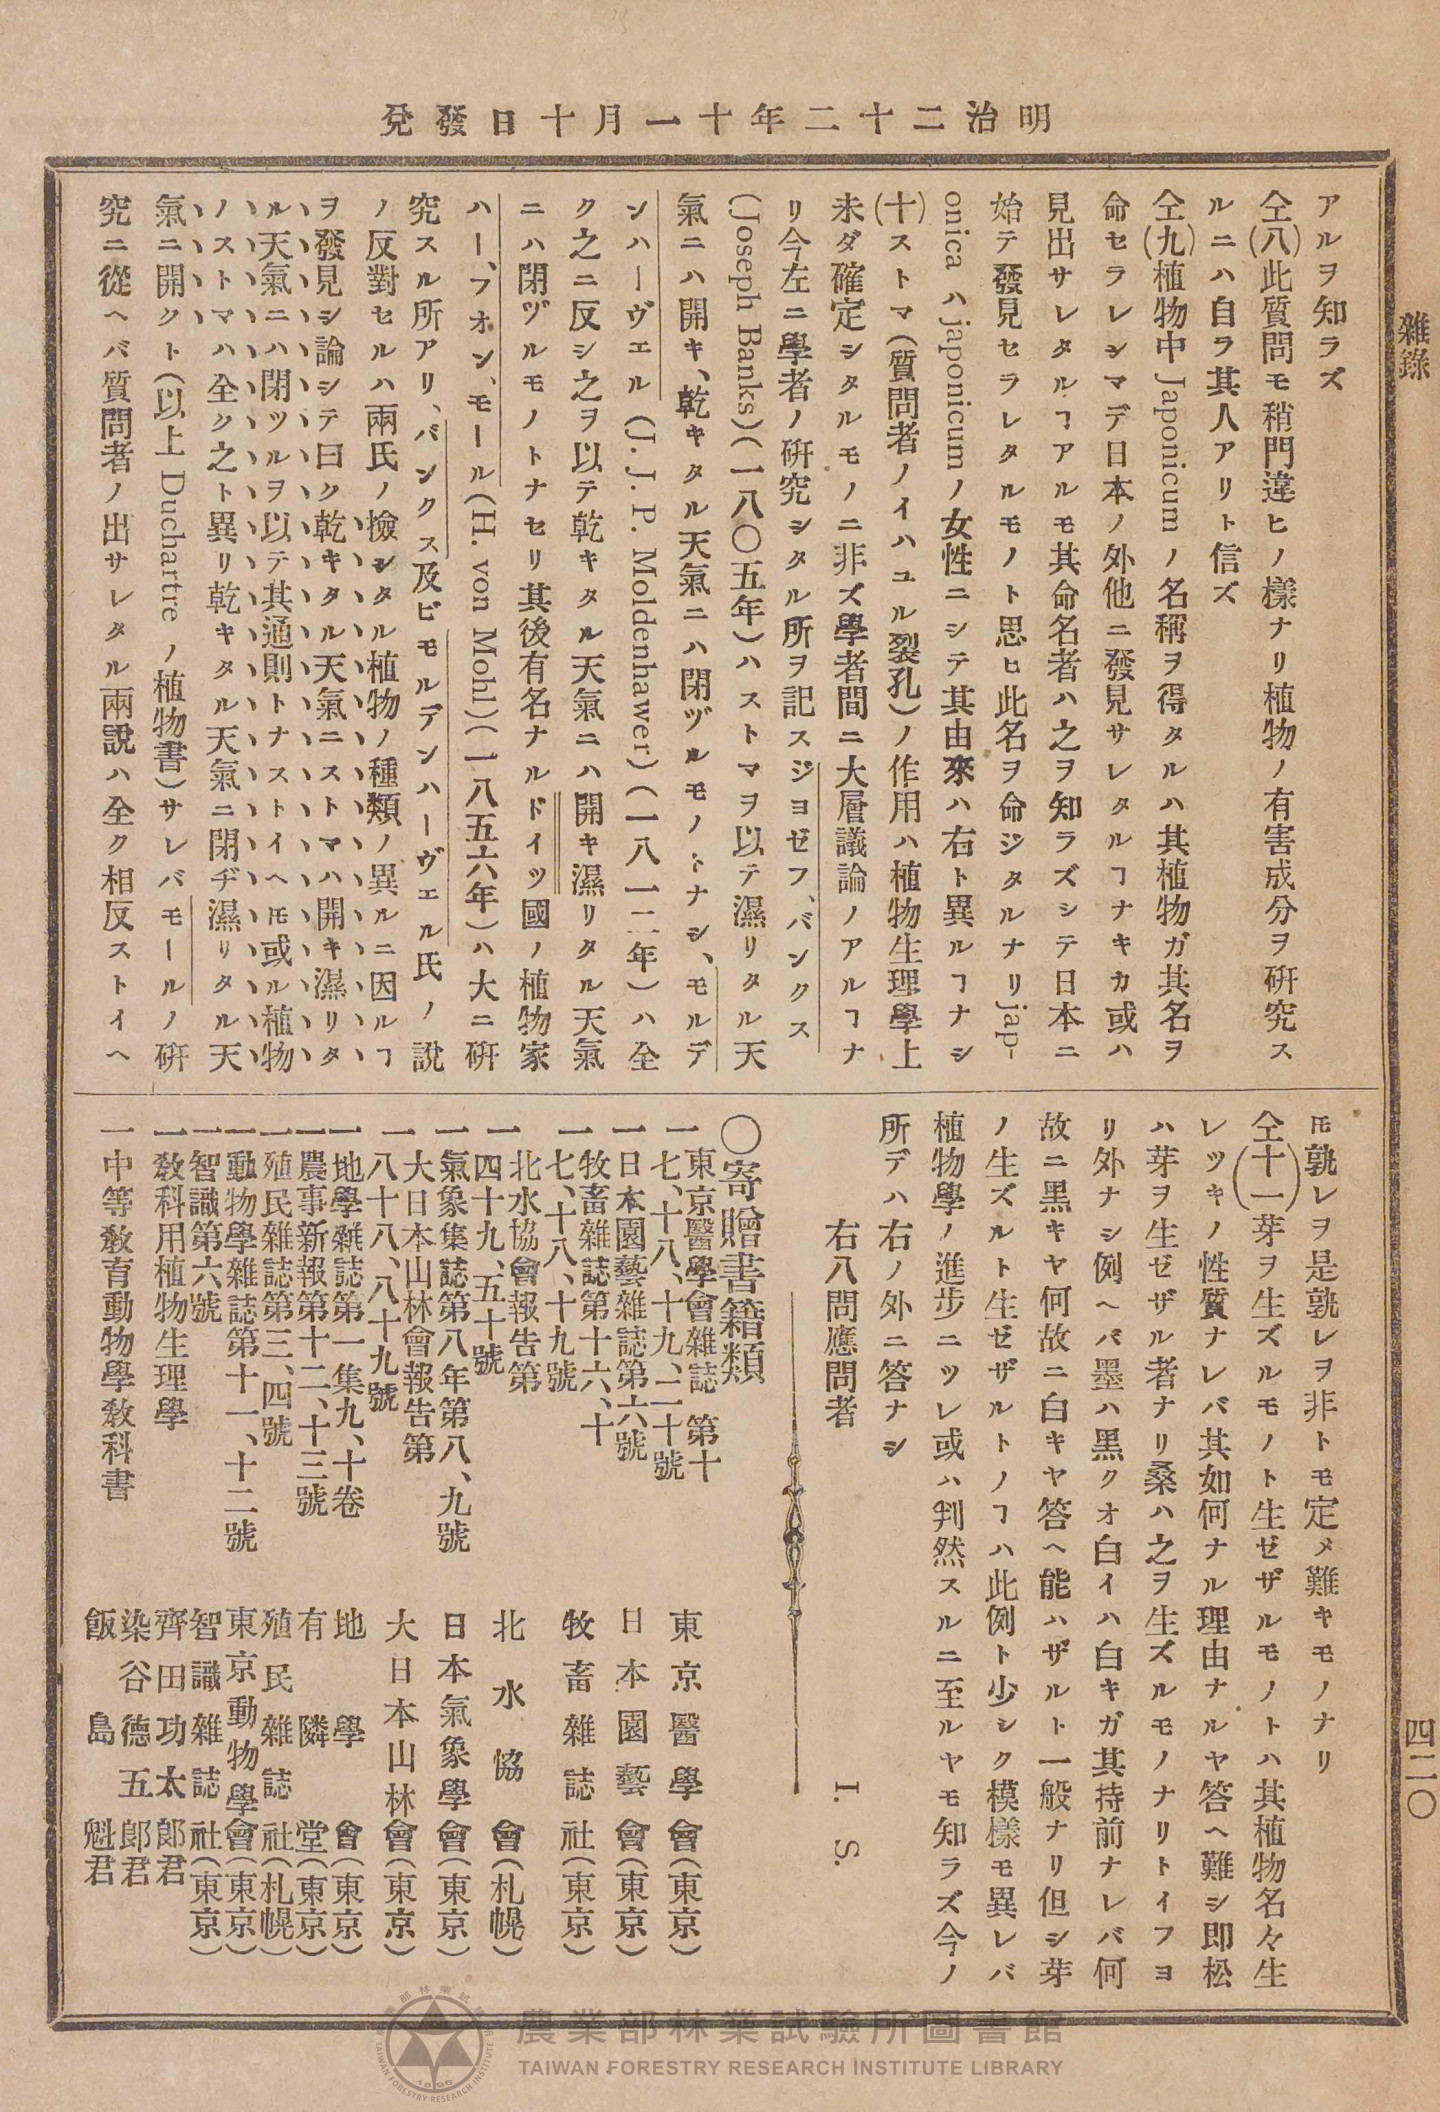 明治二十二年十一月十日發兌
雜錄
四二〇
アルヲ知ラズ
仝(八)此質問モ稍門違ヒノ樣ナリ植物ノ有害成分ヲ硏究ス
ルニハ自ラ其人アリト信ズ
仝(九)植物中 Japonicum ノ名稱ヲ得タルハ其植物ガ其名ヲ
命セラレシマデ日本ノ外他ニ發見サレタルヿナキカ或ハ
見出サレタルヿアルモ其命名者ハ之ヲ知ラズシテ日本ニ
始テ發見セラレタルモノト思ヒ此名ヲ命ジタルナリ jap-
onica ハ japonicum ノ女性ニシテ其由來ハ右ト異ルヿナシ
(十)ストマ(質問者ノイハユル裂孔)ノ作用ハ植物生理學上
未ダ確定シタルモノニ非ズ學者間ニ大層議論ノアルヿナ
リ今左ニ學者ノ硏究シタル所ヲ記スジヨゼフ、バンクス
(Joseph Banks)(一八〇五年)ハストマヲ以テ濕リタル天
氣ニハ開キ、乾キタル天氣ニハ閉ヅルモノトナシ、モルデ
ンハーヴェル (J. J. P. Moldenhawer)(一八一二年)ハ全
ク之ニ反シ之ヲ以テ乾キタル天氣ニハ開キ濕リタル天氣
ニハ閉ヅルモノトナセリ其後有名ナルドイツ國ノ植物家
ハー、フオン、モール(H. von Mohl)(一八五六年)ハ大ニ硏
究スル所アリ、バンクス及ビモルデンハーヴェル氏ノ說
ノ反對セルハ兩氏ノ撿シタル植物ノ種類ノ異ルニ因ルヿ
ヲ發見シ論シテ曰ク乾キタル天氣ニストマハ開キ濕リタ
ル天氣ニハ閉ツルヲ以テ其通則トナストイヘ𪜈或ル植物
ノストマハ全ク之ト異リ乾キタル天氣ニ閉ヂ濕リタル天
氣ニ開クト(以上 Duchartre ノ植物書)サレバモールノ硏
究ニ從ヘバ質問者ノ出サレタル兩說ハ全ク相反ストイヘ
𪜈孰レヲ是孰レヲ非トモ定メ難キモノナリ
仝(十一)芽ヲ生ズルモノト生ゼザルモノトハ其植物名々生
レツキノ性質ナレバ其如何ナル理由ナルヤ答ヘ難シ卽松
ハ芽ヲ生ゼザル者ナリ桑ハ之ヲ生ズルモノナリトイフヨ
リ外ナシ例ヘバ墨ハ黑クオ白イハ白キガ其持前ナレバ何
故ニ黑キヤ何故ニ白キヤ答ヘ能ハザルト一般ナリ但シ芽
ノ生ズルト生ゼザルトノヿハ此例ト少シク模樣モ異レバ
植物學ノ進步ニツレ或ハ判然スルニ至ルヤモ知ラズ今ノ
所デハ右ノ外ニ答ナシ
右八問應問者 I. S.
〇寄贈書籍類
一東京醫學會雜誌 第十七、十八、十九、二十號 東京醫學會(東京)
一日本園藝雜誌第六號 日本園藝會(東京)
一牧畜雜誌第十六、十七、十八、十九號 牧畜雜誌社(東京)
一北水協會報告第四十九、五十號 北水協會(札幌)
一氣象集誌第八年第八、九號 日本氣象學會(東京)
一大日本山林會報告第八十八、八十九號 大日本山林會(東京)
一地學雜誌第一集九、十卷 地學會(東京)
一農事新報第十二、十三號 有隣堂(東京)
一殖民雜誌第三、四號 殖民雜誌社(札幌)
一動物學雜誌第十一、十二號 東京動物學會(東京)
一智識第六號 智識雜誌社(東京)
一敎科用植物生理學 齊田功太郎君 染谷德五郎君
一中等敎育動物學敎科書 飯島魁君
農業部林業試驗所圖書館
TAIWAN FORESTRY RESEARCH INSTITUTE LIBRARY
林業試驗
TAIWAN FORESTRY RESEARCH INSTITUTE
1895